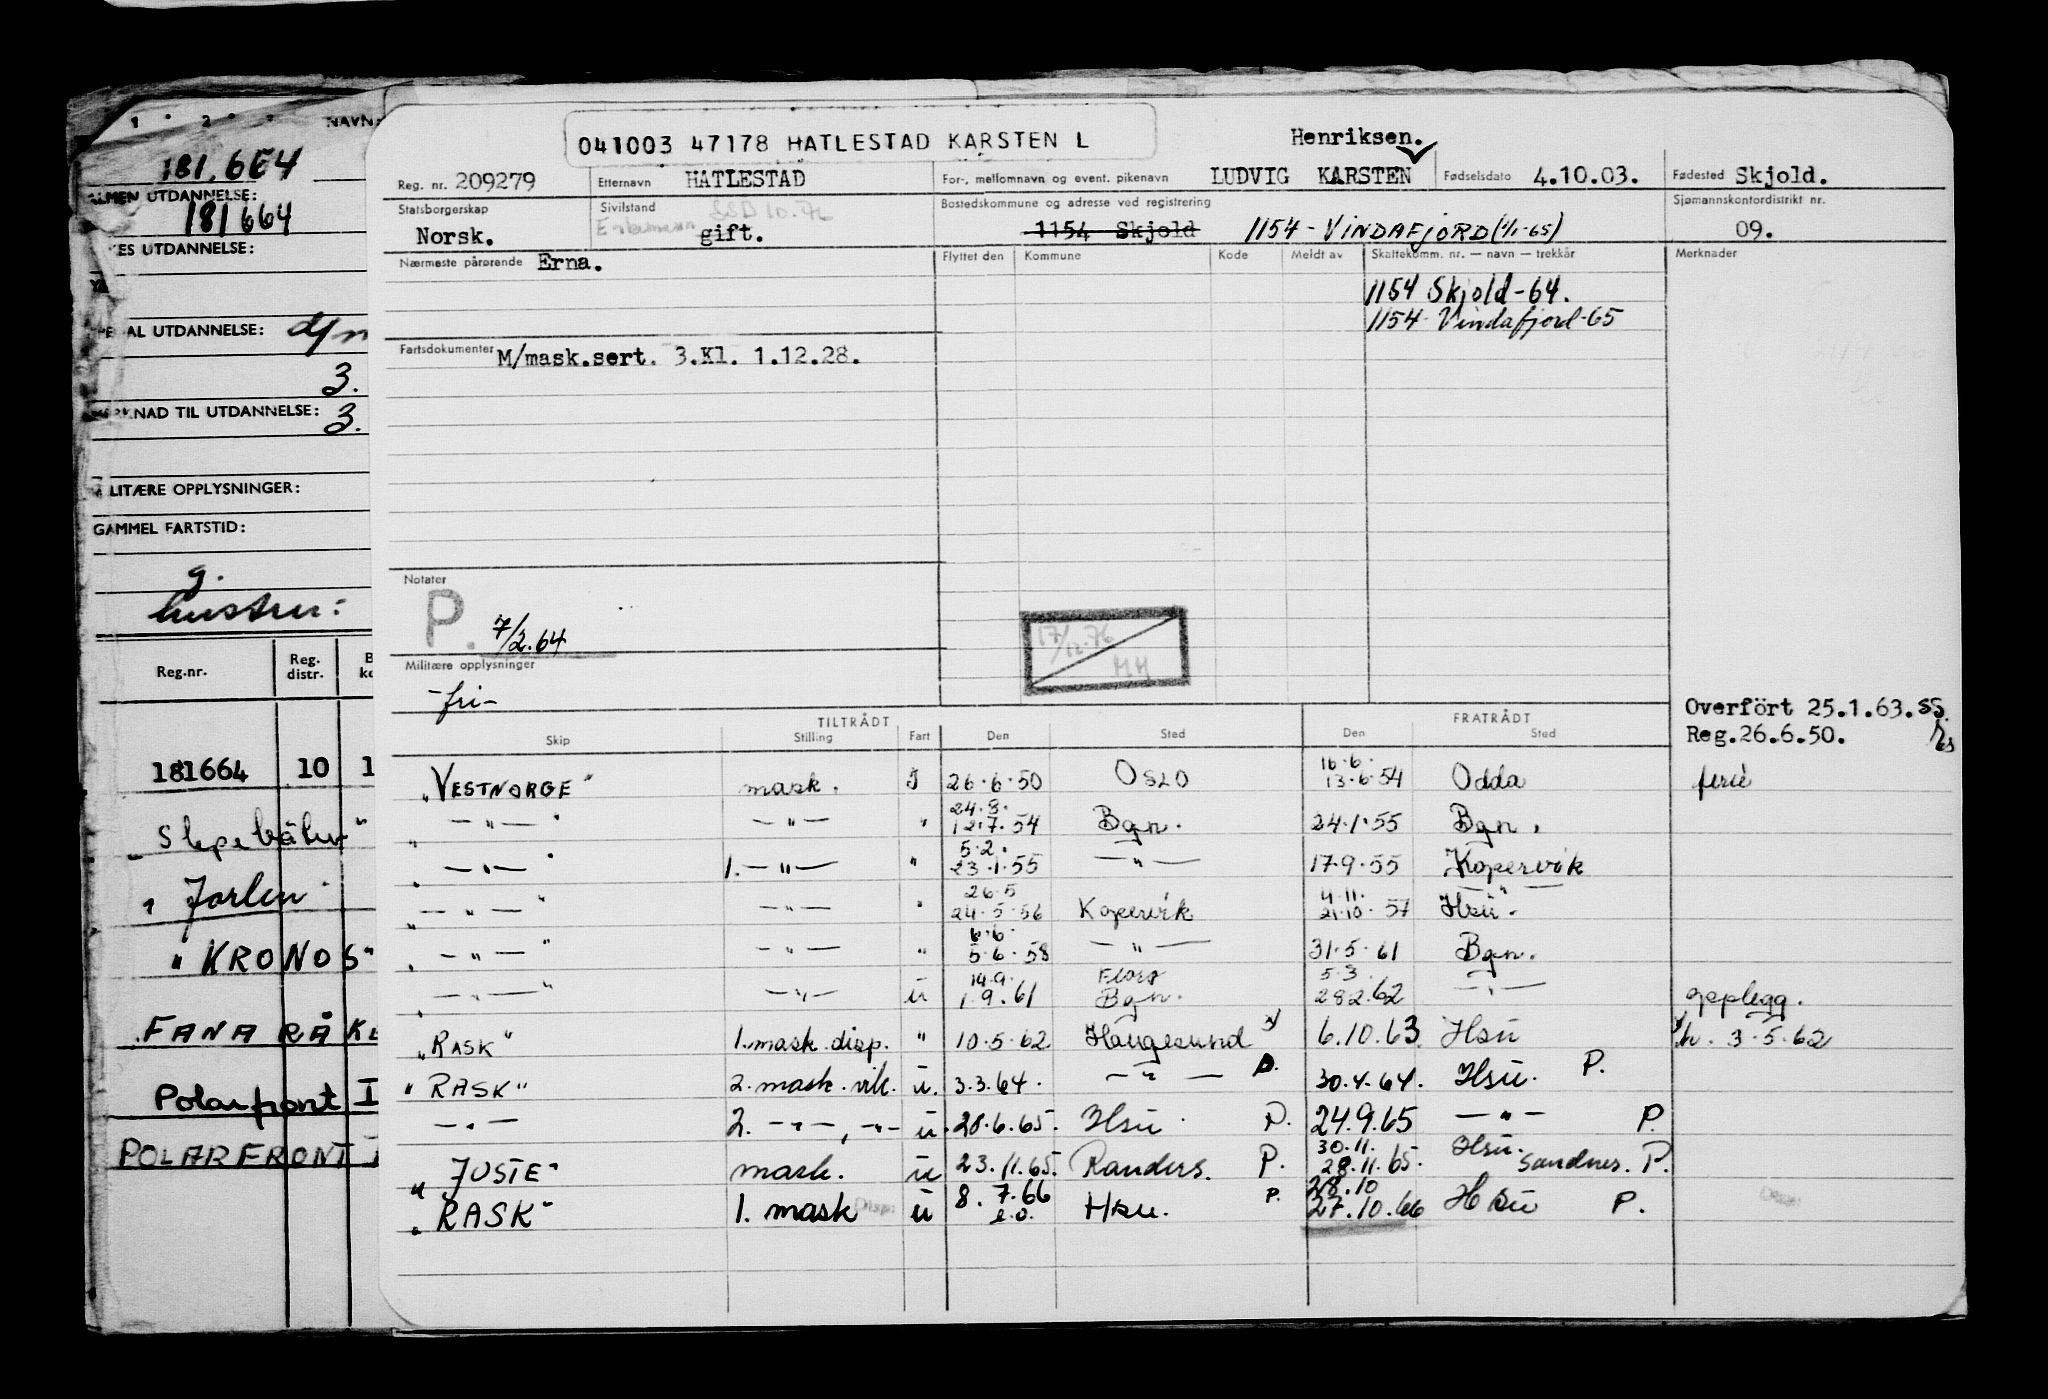 1 · 2 · · NAVN:
181.664
ALMEN UTDANNELSE:
181664
KES UTDANNELSE:
AL UTDANNELSE:
3.
MERKNAD TIL UTDANNELSE: 3.
MILITÆRE OPPLYSNINGER:
GAMMEL FARTSTID:
g.
hustru:
Reg.nr. Reg. distr.
181664 10 1
" Jarlen "
" KRONOS "
FANARÅK
Polarfront I
POLARFRONT I
041003 47178 HATLESTAD KARSTEN L
Henriksen.
Reg. nr. 209279 Etternavn HATLESTAD For-, mellomnavn og event. pikenavn LUDVIG KARSTEN Fødselsdato 4.10.03. Fødested Skjold.
Statsborgerskap Norsk. Sivilstand Enkemann gift. SSB 10.76 Bostedskommune og adresse ved registrering 1154 Skjold 1154 - VINDAFJORD (1/1-65) Sjømannskontordistrikt nr. 09.
Nærmeste pårørende Erna. Flyttet den Kommune Kode Meldt av Skattekomm. nr. — navn — trekkår Merknader
1154 Skjold-64.
1154 Vindafjord-65
Fartsdokumenter M/mask.sert. 3.Kl. 1.12.28.
Notater
P. 7/2.64
17/12.76
HH
Militære opplysninger
-fri-
Overfört 25.1.63. SS.
Reg.26.6.50.
TILTRÅDT FRATRÅDT
Skip Stilling Fart Den Sted Den Sted
"VESTNORGE" mask. I 26.6.50 OSLO 16.6. 13.6.54 Odda ferie
" — " — " — " — " 24.8. 12.7.54 Bgn. 24.1.55 Bgn.
" — " — " 1. — " — " 5.2. 23.1.55 — " — 17.9.55 Kopervik
" — " — " — " — " 26.5 24.5.56 Kopervik 4.11. 21.10.57 Hsu.
" — " — " — " — " 6.6. 5.6.58 — " — 31.5.61 Bgn.
" — " — " — " — u 14.9. 1.9.61 Florø Bgn. 5.3. 28.2.62 — " — opplegg.
"RASK" 1. mask. disp. " 10.5.62 Haugesund x) 6.10.63 Hsu x) 3.5.62
"RASK" 2. mask. vik. u. 3.3.64. — " — P. 30.4.64. Hsu. P.
— " — 2. — " —, — " — u. 28.6.65. Hsu. P. 24.9.65 — " — P.
"JUSTE" mask. u 23.11.65. Randers. P. 30.11. 28.11.65. Hsu. Sandnes. P.
"RASK" 1. mask Disp. u 8.7.66 Hsu. P. 28.10 27.10.66 Hsu P. Disp.